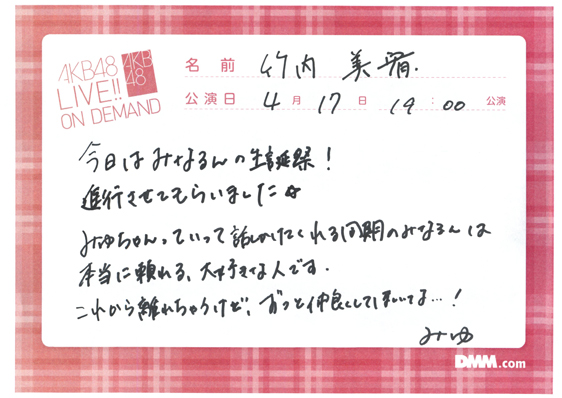 AKB48
LIVE!!
ON DEMAND
AKB
48
名前 竹内 美宥.
公演日 4月17日 19:00 公演
今日はみなるんの生誕祭!
進行させてもらいました☆
みゆちゃんっていって話しかけてくれる同期のみなるんは
本当に頼れる、大好きな人です.
これから離れちゃうけど、ずっと仲良くしてほしいてな…!
みゆ
DMM.com